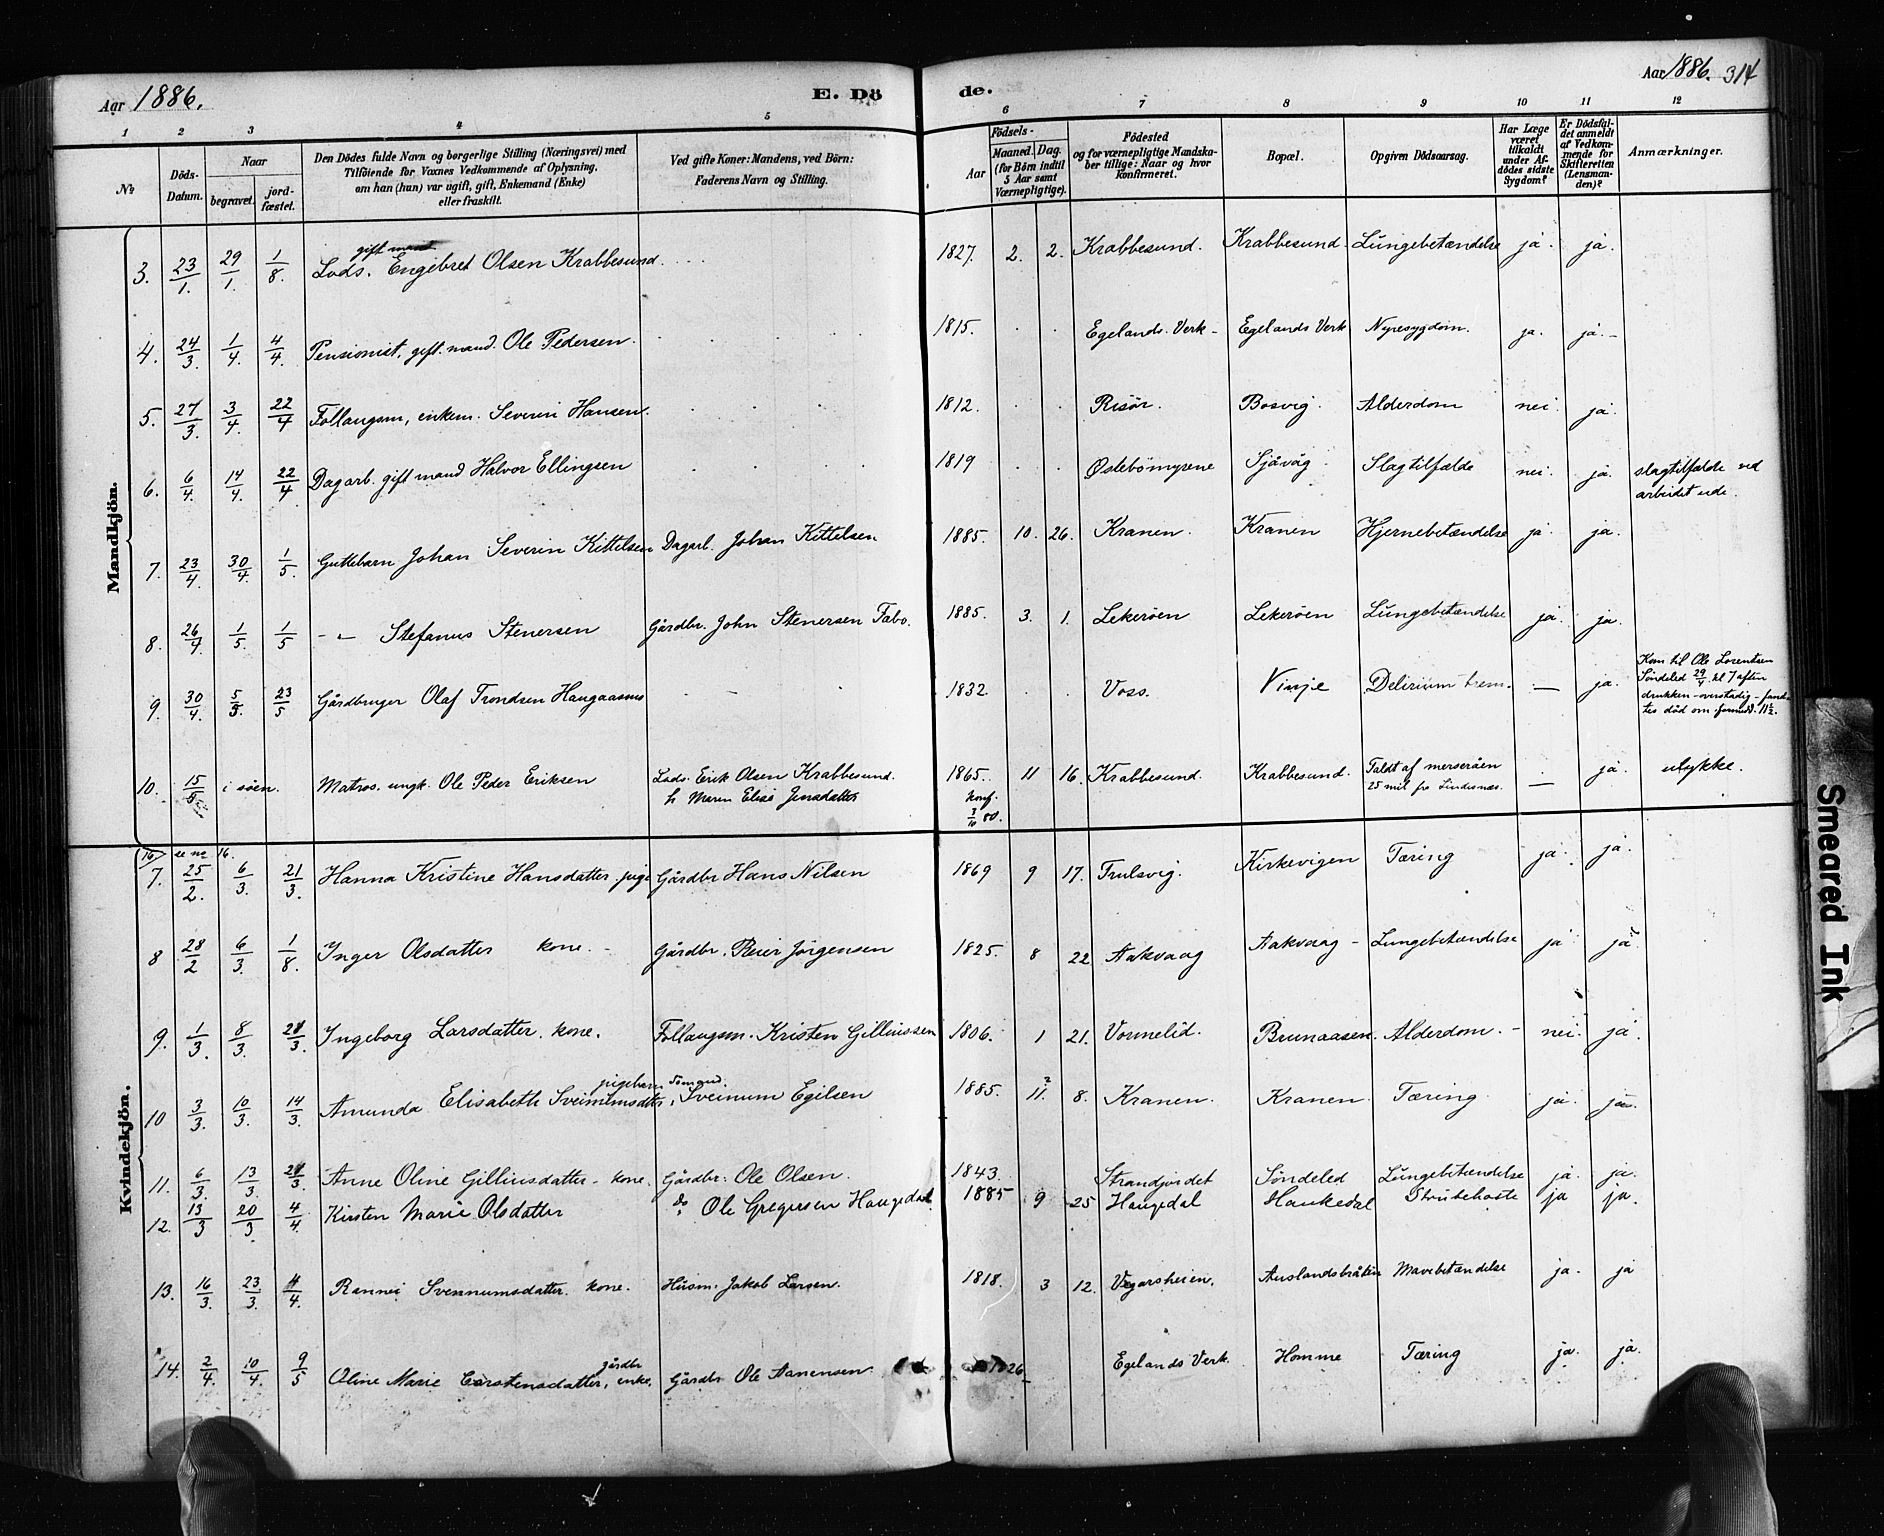 Aar 1886. E. Dö de. Aar 1886. 314
1 2 3 4 5 6 7 8 9 10 11 12
No
Döds-Datum.
Naar
begravet.
jord-fæstet.
Den Dödes fulde Navn og borgerlige Stilling (Næringsvei) med
Tilföiende for Voxnes Vedkommende af Oplysning,
om han (hun) var ugift, gift, Enkemand (Enke)
eller fraskilt.
Ved gifte Koner: Mandens, ved Börn:
Faderens Navn og Stilling.
Födsels-
Aar
Maaned. Dag.
(for Börn indtil
5 Aar samt
Værnepligtige).
Födested
og for værnepligtige Mandska-
ber tillige: Naar og hvor
konfirmeret.
Bopæl.
Opgiven Dödsaarsag.
Har Læge
været
tilkaldt
under Af-
dödes sidste
Sygdom?
Er Dödsfal-
det anmeldt
af Vedkom-
mende for
Skifteretten
(Lensman-
den)?
Anmærkninger.
Mandkjön.
gift mand
3. 23/1. 29/1. 1/8. Lods. Engebret Olsen Krabbesund. 1827. 2. 2. Krabbesund. Krabbesund. Lungebetændelse ja. ja.
4. 24/3. 1/4. 4/4. Pensionist, gift. mand. Ole Pedersen. 1815. Egelands. Verk - Egelands Verk Nyresygdom. ja. ja. -
5. 27/3. 3/4. 22/4 Follaugsm, enkem. Severin Hansen. 1812. Risör. Bosvig. Alderdom nei. ja.
6. 6/4. 14/4. 22/4 Dagarb. gift mand Halvor Ellingsen 1819 Østebömyrene Sjåvåg. Slagtilfælde nei. ja. slagtilfælde ved
arbeidet ude.
7. 23/4. 30/4. 1/5. Guttebarn Johan Severin Kittelsen Dagarb. Johan Kittelsen 1885. 10. 26. Kranen. Kranen Hjernebetændelse ja. ja.
8. 26/4. 1/5. 1/5 - " - Stefanus Stenersen Gårdbr. John Stenersen Fabo. 1885. 3. 1. Lekeröen Lekeröen Lungebetændelse ja. ja.
9. 30/4. 5/5. 23/5 Gårdbruger Olaf Trondsen Haugaasnes - 1832. Voss. Vinje Delirium trem. — ja. Kom til Ole Lorentsen
Söndeled 29/4. kl 7 aften
drukken - overstadig - fand-
tes död om formidd. 11½.
10. 15/5 i söen. Matros. ungk. Ole Peder Eriksen Lods. Erik Olsen Krabbesund. 1865. 11 16. Krabbesund. Krabbesund. Faldt af merseråen — ja. ulykke.
h. Maren Elise Jensdatter konf. 3/10 80. 25 mil fra Lindesnæs.
Kvindekjön.
16 se no 16.
7. 25/2. 6/3. 21/3. Hanna Kristine Hansdatter. pige Gårdbr Hans Nilsen 1869 9 17. Trulsvig. Kirkevigen Tæring ja. ja.
8 28/2 6/3. 1/8. Inger Olsdatter kone. - Gårdbr. Reier Jörgensen 1825. 8 22 Aakvaag Aakvaag - Lungebetændelse ja ja
9. 1/3. 8/3. 21/3. Ingeborg Larsdatter. kone. Follaugsm. Kristen Gilliussen 1806. 1 21. Vormelid. Brunaasen. Alderdom. - nei. ja.
pigebarn Sömand.
10 3/3. 10/3. 14/3. Amunda Elisabeth Sveinumsdatter, Sveinum Egilsen 1885. 11. 8. Kranen. Kranen. Tæring. ja. ja.
11. 6/3. 13/3. 21/3. Anne Oline Gilliusdatter - kone. Gårdbr. Ole Olsen. 1843. Strandjordet Söndeled Lungebetændelse ja. ja.
12. 13/3 20/3. 4/4. Kirsten Marie Olsdatter do Ole Gregersen Haugedal. 1885 9 25 Haugedal Haukedal Strubehoste ja ja.
13. 16/3. 23/3. 4/4. Rannei Svennumsdatter. kone. Husm. Jakob Larsen. 1818. 3 12. Vegarsheien. Auslandsbråten Mavebetændelse ja. ja
gårdbr
14. 2/4. 10/4. 9/5 Oline Marie Carstensdatter, enke. Gårdbr Ole Aanensen 1826 Egelands Verk. Homme Tæring ja. ja.
Smeared Ink